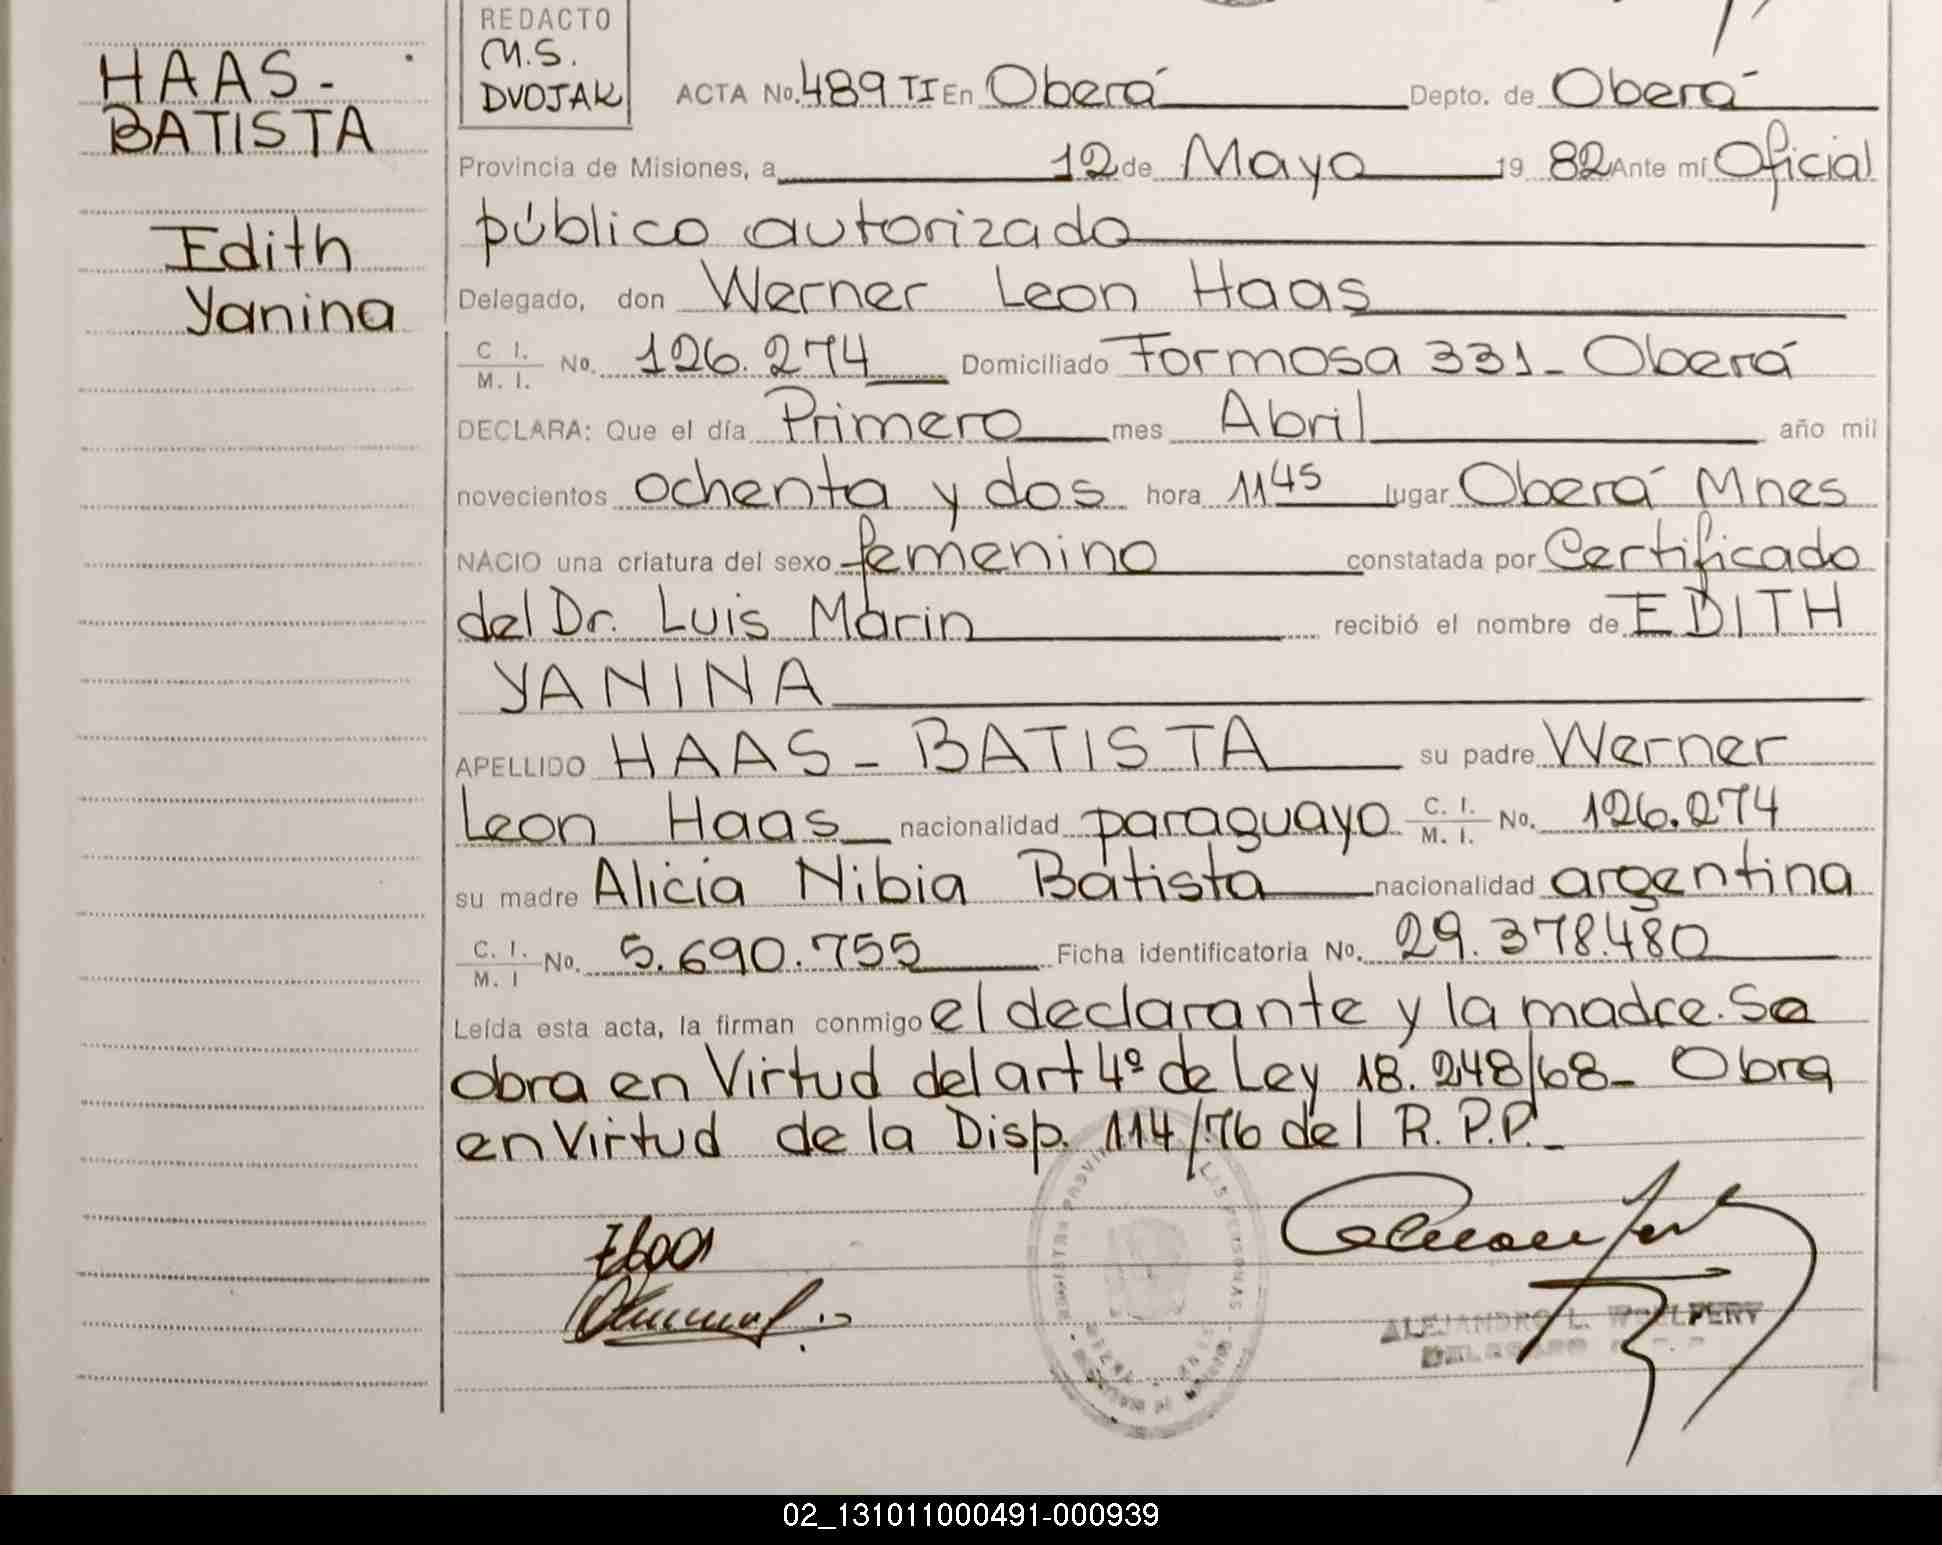 HAAS-
BATISTA
Edith
Yanina
REDACTO
M.S.
DVOJAK
ACTA No. 489 TI En Oberá Depto. de Oberá
Provincia de Misiones, a 12 de Mayo 19 82 Ante mí Oficial
público autorizado
Delegado, don Werner Leon Haas
C I. M. I. No. 126.274 Domiciliado Formosa 331- Oberá
DECLARA: Que el día Primero mes Abril año mil
novecientos ochenta y dos hora 11 45 lugar Oberá Mnes
NACIO una criatura del sexo femenino constatada por Certificado
del Dr. Luis Marin recibió el nombre de EDITH
YANINA
APELLIDO HAAS - BATISTA su padre Werner
Leon Haas nacionalidad paraguayo C. I. M. I. No. 126.274
su madre Alicia Nibia Batista nacionalidad argentina
C. I. M. I No. 5.690.755 Ficha identificatoria No. 29.378.480
Leída esta acta, la firman conmigo el declarante y la madre. Se
obra en Virtud del art 4º de Ley 18.248/68- Obra
en Virtud de la Disp. 114/76 del R.P.P.-
ALEJANDRO L.
02_131011000491-000939